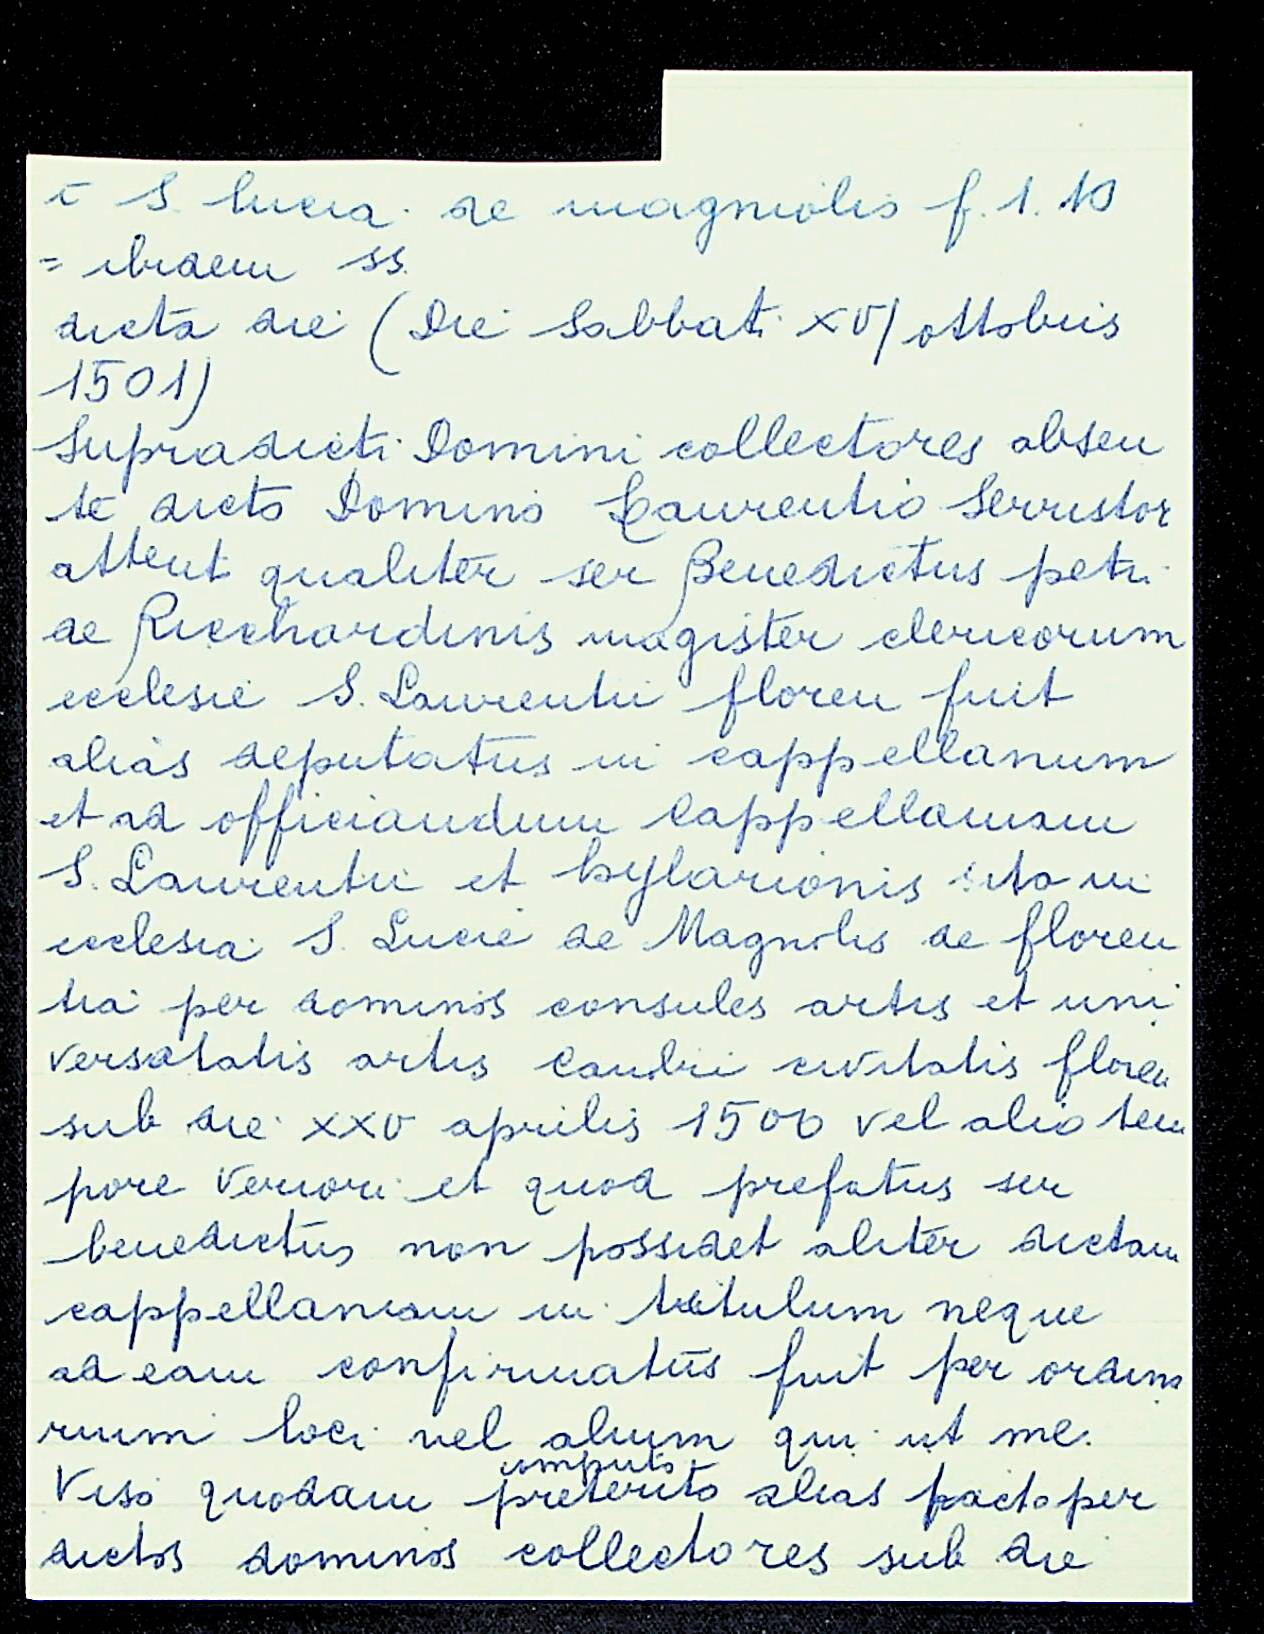 c S. Lucia de magniolis f. 1. 10
= ibidem ss.
dicta die (Die Sabbati XVI ottobris
1501)
Supradicti Domini collectores absen
te dicto Domino Laurentio Serristor
attent. qualiter ser Benedictus petri
de Ricchardinis magister clericorum
ecclesie S. Laurentii floren fuit
alias deputatus in cappellanum
et ad officiandum Cappellaniam
S. Laurentii et hylarionis sita in
ecclesia S. Lucie de Magnolis de floren
tia per dominos consules artis et uni
versetatis artis Cambii civitatis floren
sub die XXV aprilis 1500 vel alio tem
pore veriori et quod prefatus ser
benedictus non possidet aliter dictam
cappellaniam in titulum neque
ad eam confirmatus fuit per ordina
rium loci vel alium qui ut me.
computo
Viso quodam preterito alias facto per
dictos dominos collectores sub die